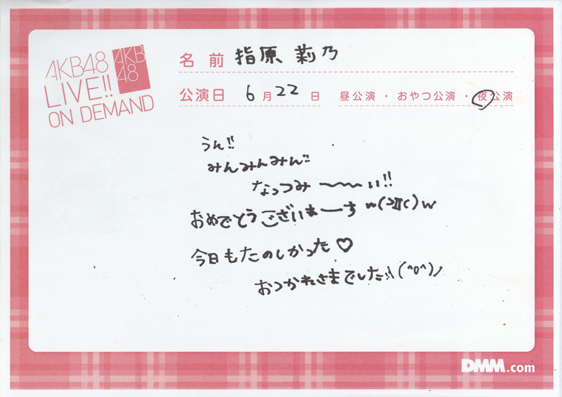 AKB48
LIVE!!
ON DEMAND
AKB
48
名前 指原莉乃
公演日 6月22日 昼公演・おやつ公演・夜公演
うん!!
みんみんみん!!
なっつみ〜〜い!!
おめでとうございまーす
今日もたのしかった♡
おつかれさまでした!!(^o^)ノ
DMM.com